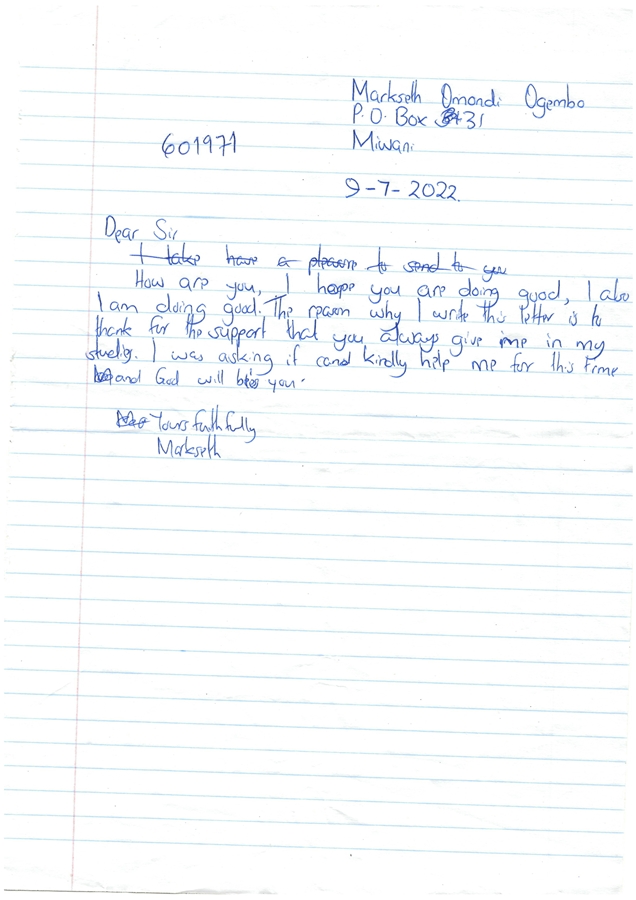 Markseth Omondi Ogembo
P.O. Box 31
601971
Miwani
9-7-2022.
Dear Sir
I take have a pleasure to send to you
How are you, I hope you are doing good, I also
I am doing good. The reason why I write this letter is to
thank for the support that you always give me in my
I was asking if cand kindly help me for this time
and God will bless you.
Yours faithfully
Markseth